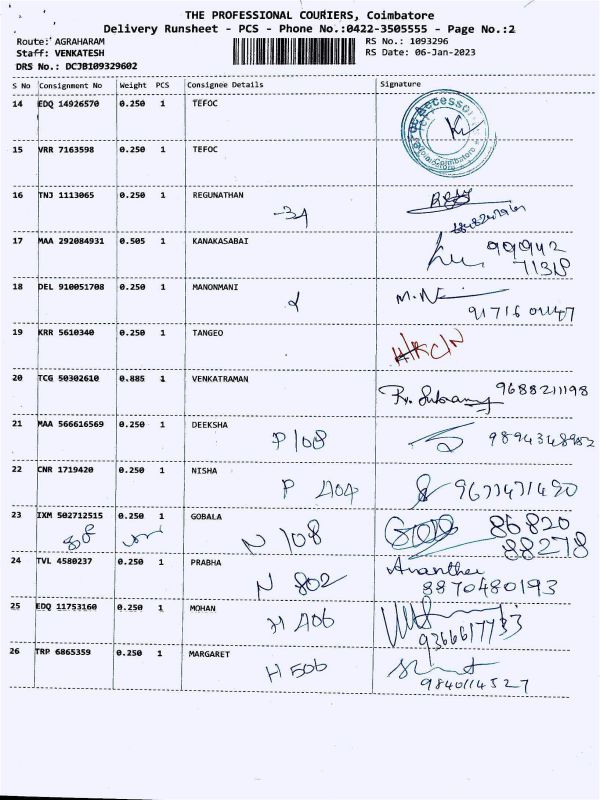 THE PROFESSIONAL COURIERS, Coimbatore
Delivery Runsheet - PCS - Phone No.:0422-3505555 - Page No.:2
Route: AGRAHARAM RS No.: 1093296
Staff: VENKATESH RS Date: 06-Jan-2023
DRS No.: DCJB109329602
S No Consignment No Weight PCS Consignee Details Signature
14 EDQ 14926570 0.250 1 TEFOC
15 VRR 7163598 0.250 1 TEFOC
Coimbatore
16 TNJ 1113065 0.250 1 REGUNATHAN
-34
17 MAA 292084931 0.505 1 KANAKASABAI 99942
71318
18 DEL 910051708 0.250 1 MANONMANI
9171601147
19 KRR 5610340 0.250 1 TANGEO
20 TCG 50302610 0.885 1 VENKATRAMAN 9688211198
21 MAA 566616569 0.250 1 DEEKSHA
P 108 9894348952
22 CNR 1719420 0.250 1 NISHA
P 404 9677471490
23 IXM 502712515 0.250 1 GOBALA 86820
N 108 88278
24 TVL 4580237 0.250 1 PRABHA
N 802 8870480193
25 EDQ 11753160 0.250 1 MOHAN
H 406 9366617733
26 TRP 6865359 0.250 1 MARGARET
H 506
9840114527